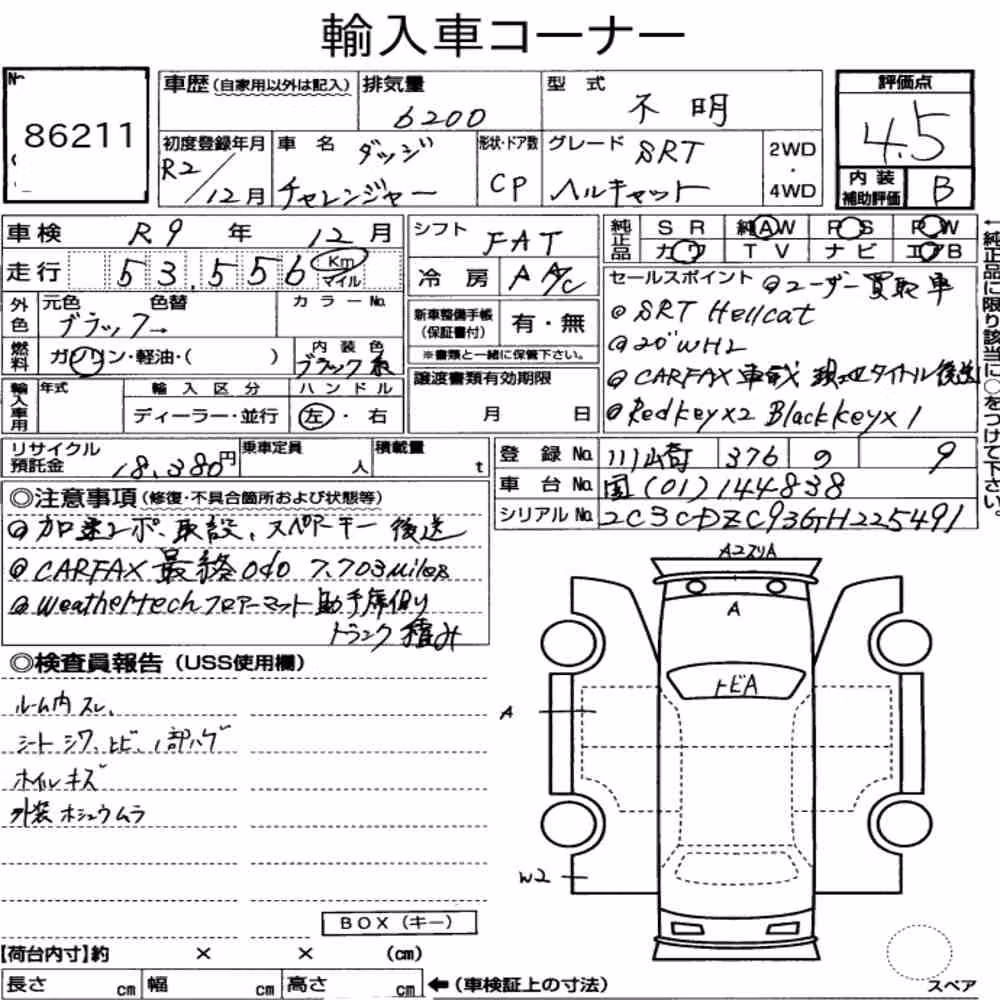 輸入車コーナー
№ 86211
車歴(自家用以外は記入) 排気量 6200 型式 不明 評価点 4.5
初度登録年月 R2/12月 車名 ダッジ チャレンジャー 形状・ドア数 CP グレード SRT ヘルキャット 2WD・4WD
内装補助評価 B
車検 R9年 12月 シフト FAT 純正品 SR 純AW PS PW
走行 53,556 Km マイル 冷房 AA/C カワ TV ナビ エアB
外色 元色 ブラック→ 色替 カラーNo.
新車整備手帳(保証書付) 有・無
※書類と一緒に保管下さい。
燃料 ガソリン・軽油・( ) 内装色 ブラック系
輸入車用 年式 輸入区分 ディーラー・並行 ハンドル 左・右
譲渡書類有効期限 月 日
セールスポイント ◎ユーザー買取車
◎SRT Hellcat
◎20"WH2
◎CARFAX車載 現地タイトル後送
◎Redkeyx2 Blackkeyx1
←純正品に限り該当に○をつけて下さい。
リサイクル預託金 18,380円 乗車定員 人 積載量 t
登録No. 川崎 376 の 9
車台No. 国(01)144838
シリアルNo. 2C3CDZC93GH225491
◎注意事項(修復・不具合箇所および状態等)
◎加速レポ、取説、スペアーキー 後送
◎CARFAX最終odo 7.703miles
◎Weathertechフロアーマット助手席側り
トランク積み
◎検査員報告(USS使用欄)
ルーム内スレ、
シートシワ、トビ、1部ハゲ
ホイルキズ
外装ホシュウムラ
A2スリA
A
トビA
A
W2
BOX(キー)
【荷台内寸】約 × × (cm)
長さ cm 幅 cm 高さ cm ←(車検証上の寸法)
スペア